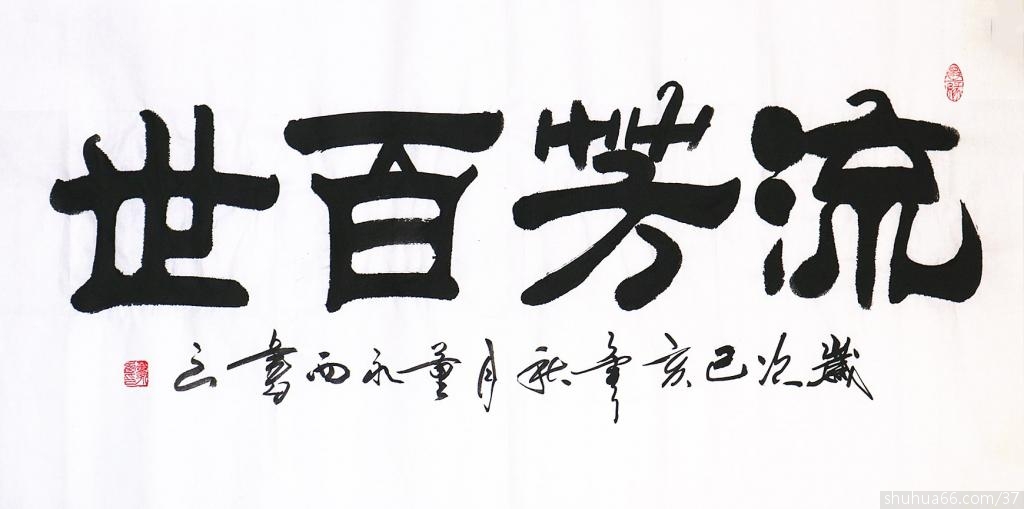 流芳百世
岁次己亥年秋月董永西書之
shuhua66.com/37